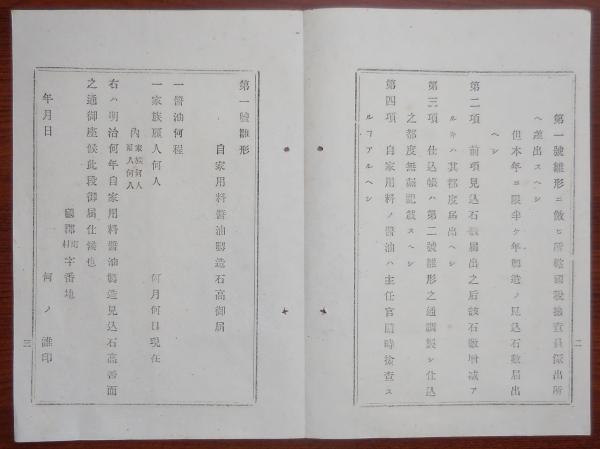 第一號雛形ニ倣ヒ所轄國税檢査員派出所
ヘ差出スヘシ
但本年ニ限半ケ年製造ノ見込石數届出
ヘシ
第二項 前項見込石數届出之后該石數増減ア
ルキハ其都度届出ヘシ
第三項 仕込帳ハ第二號雛形之通調製シ仕込
之都度無漏記載スヘシ
第四項 自家用料ノ醤油ハ主任官隨時檢査ス
ルヿアルヘシ
二
第一號雛形
自家用料醤油製造石高御届
一醤油何程
一家族雇人何人 何月何日現在
内 家族何人 雇人何人
右ハ明治何年自家用料醤油製造見込石高書面
之通御座候此段御届仕候也
國郡町村字番地
年月日 何ノ誰印
三